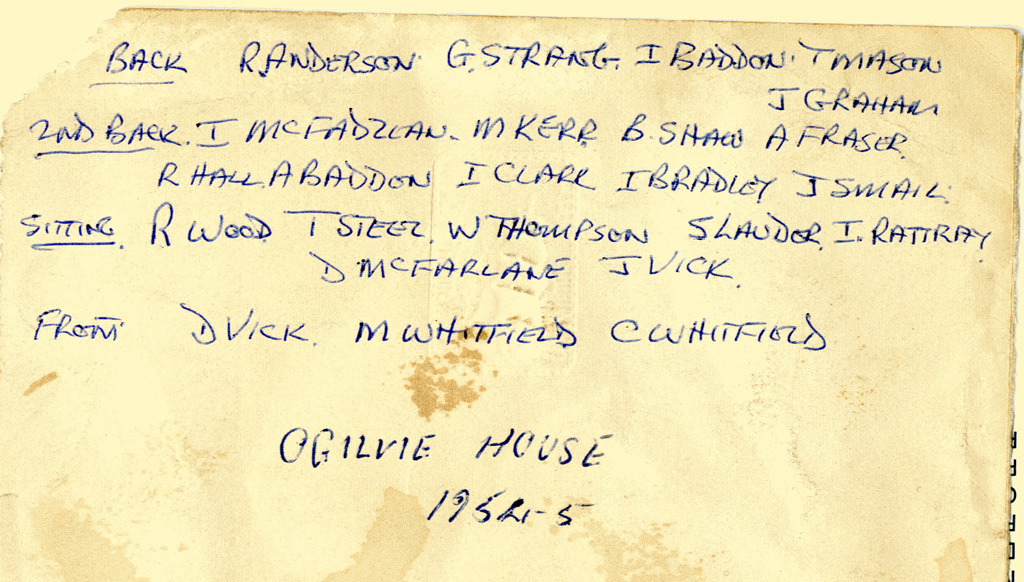 BACK R. ANDERSON G. STRANG. I BADDON. T MASON
J GRAHAM
2ND BACK. I MCFADZEAN. M KERR. B. SHAW A FRASER.
R HALL. A BADDON I CLARK I BRADLEY J SMAIL.
SITTING. R WOOD. T STEEL. W THOMPSON S LAUDER. I. RATTRAY
D MCFARLANE J VICK.
FRONT D VICK. M WHITFIELD C WHITFIELD
OGILVIE HOUSE
1954-5